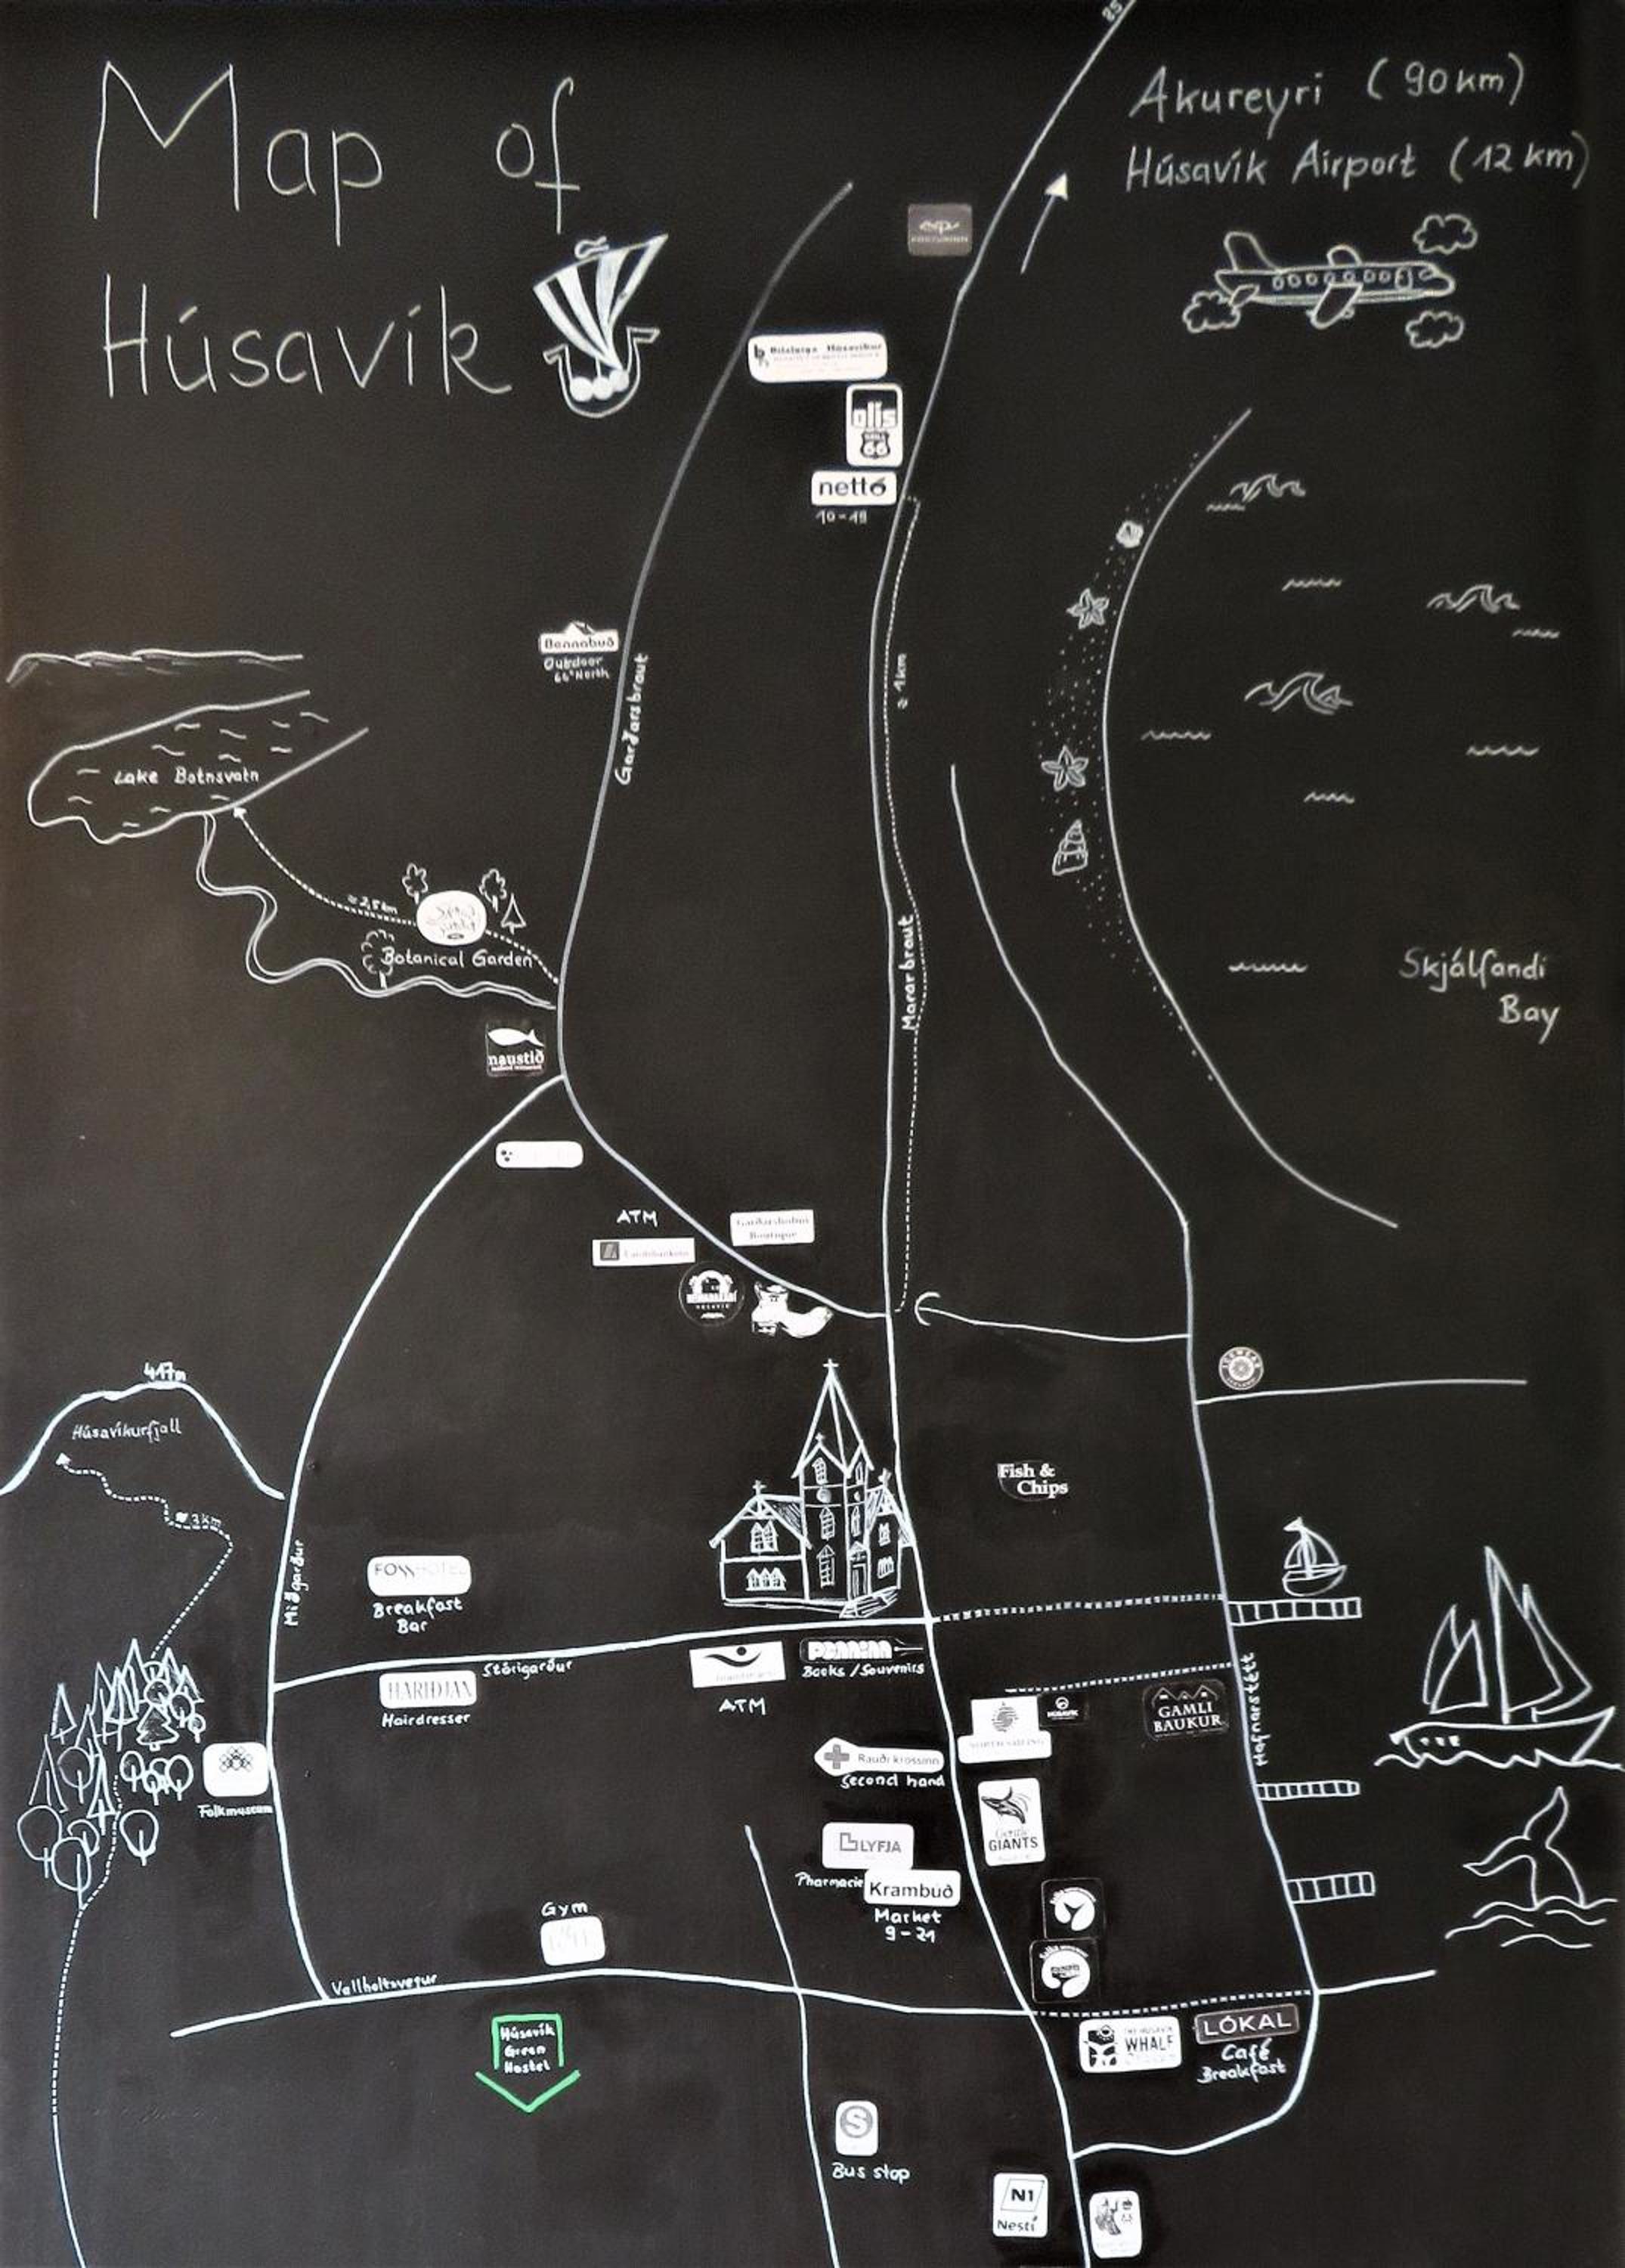 85
Map of
Húsavík
Akureyri (90km)
Húsavík Airport (12 km)
Bílaleiga Húsavíkur
olís
66
nettó
10-19
≈ 1km
Bennabuð
Outdoor
66°North
Garðarsbraut
Lake Botnsvatn
≈ 2,5km
Botanical Garden
Mararbraut
Skjálfandi
Bay
naustið
ATM
Landsbankinn
Garðarshólmi
Boutique
417m
Húsavíkurfjall
≈ 3km
Fish &
Chips
Miðgarður
FOSSHOTEL
Breakfast
Bar
Stórigarður
HÁRIÐJAN
Hairdresser
ATM
Penninn
Books / Souvenirs
GAMLI
BAUKUR
Hafnarstétt
NORTH SAILING
Rauði krossinn
Second hand
Folkmuseum
Gentle
GIANTS
LYFJA
Pharmacie
Krambuð
Market
9-21
Gym
Vallholtsvegur
Húsavík
Green
Hostel
THE HÚSAVÍK
WHALE
LÓKAL
Café
Breakfast
S
Bus stop
N1
Nesti